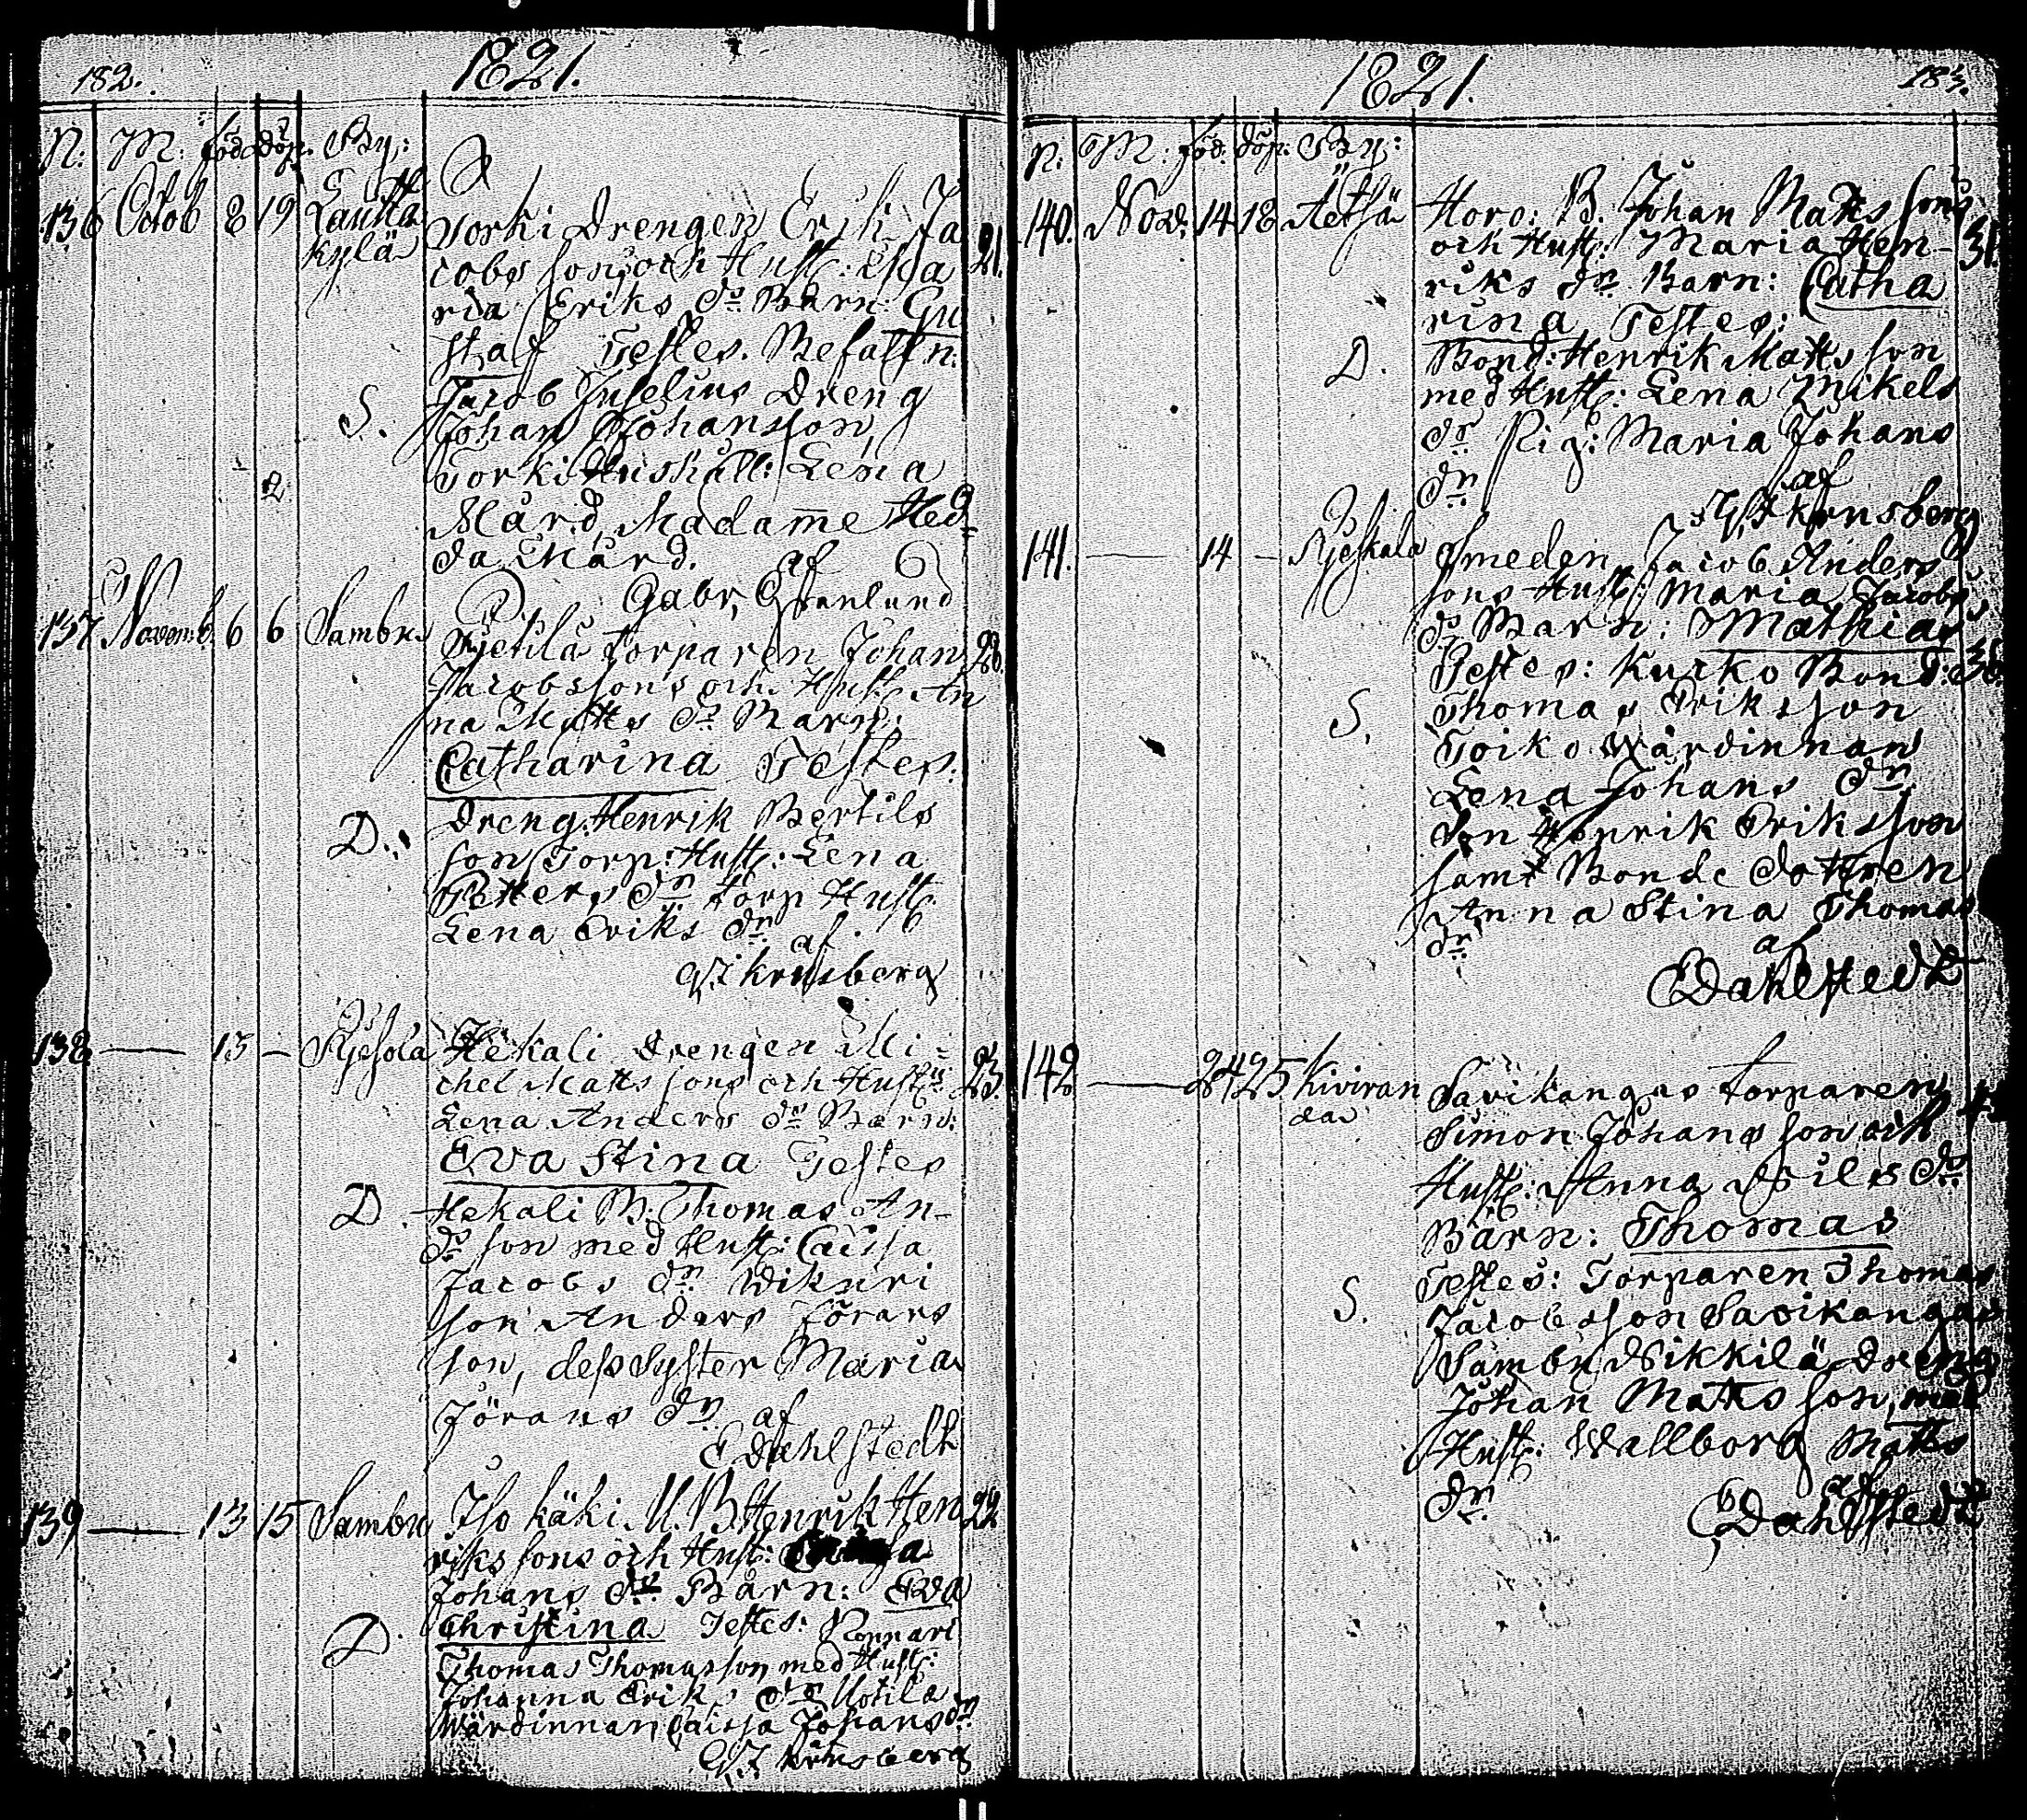 182.
1821.
N: M: föd. döp. By:
136 Octob 8 19 Lautta
kylä
Torki Drengen Erik Ja
cobs sons och Hust: Ma 21.
ria Eriks dr Barn: Gu
staf Testes. Befalln:
S. Jacob Juselius Dreng
Johan Johansson,
Torki Hushåll: Lena
Mård, Madame Hed-
da Mård. af
Gabr. Granlund
137 Novemb. 6 6 Sambu
torparen Johan 28.
Jacobssons och Hust: An
na Matts dr Barn:
Catharina Testes:
D. Dreng: Henrik Bertils
son Torp: Hust: Lena
Petters dr torp Hust:
Lena Eriks dr af
138 — 13 —
Hekali Drengen Mi-
chel Matts sons och Hust: 23.
Lena Anders dr Barn:
Eva Stina Testes
D. Hekali B. Thomas An-
drson med Hust: Caisa
Jacobs dr Wikuri
son Anders Jörans
son, dess Syster Maria
Jörans dr af
E Dahlstedt
139 — 13 15 Sambu
Iso käki U. B. Henrik Hen 22
riks sons och Hust:
Johans dr Barn: Eva
D. Christina Testes:
Thomas Thomasson med Hust:
Johanna Eriks dr Uotila
Wärdinnan Caisa Johans dr
1821.
183.
N: M: föd. döp. By:
140. Nov. 14 18 Äetsä
Horo: B. Johan Matts sons
och Hust: Maria Hen- 31.
riks dr Barn: Catha
rina Testes:
D. Bond: Henrik Matts son
med Hust: Lena Mikels
dr Pig: Maria Johans
dr af
141. — 14 —
Smeden Jacob Anders
sons Hust: Maria Jacobs
dr Barn: Mathias
Testes: Kurko Bond:
S. Thomas Eriksson
Toiko Wärdinnan
Lena Johans dr
Son Henrik Eriksson
samt Bonde dottren
Anna Stina Thomas
dr af
E Dahlstedt
142 — 24 25 Kiviran
da
Savikangas torparen
Simon Johans son och
Hust: Anna Nils dr
Barn: Thomas
Testes: Torparen Thomas
S. Jacobsson Savikangas
Sambu Nikkilä dreng
Johan Matts son, med
Hust: Wallborg Matts
dr af
E Dahlstedt